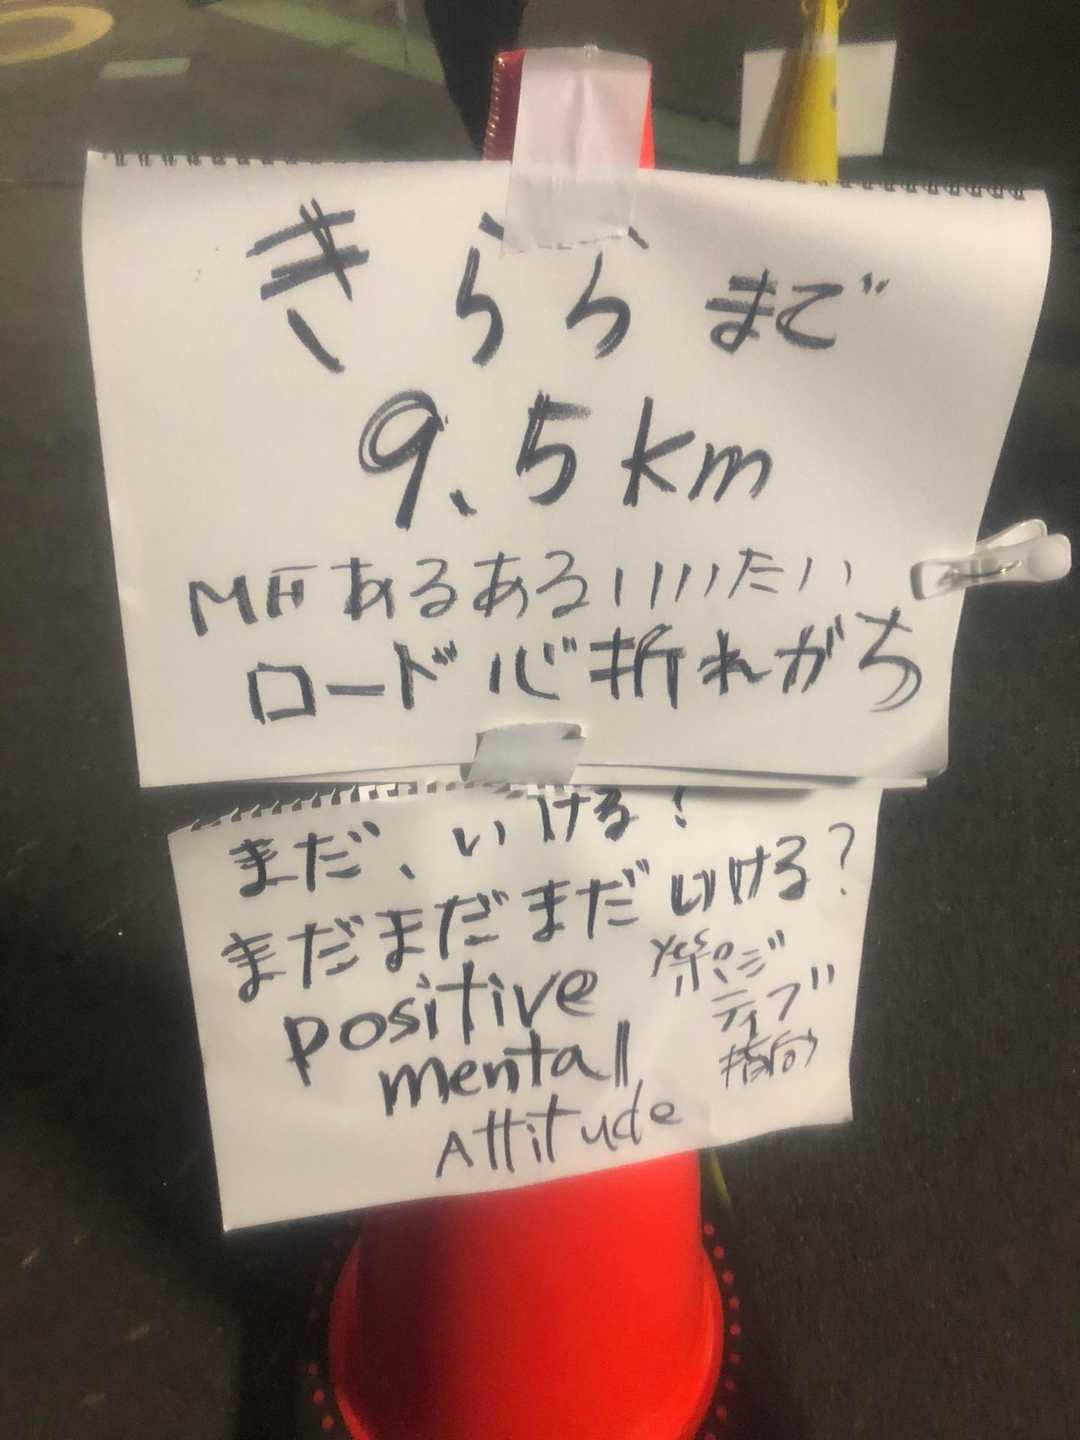 きららまで
9.5km
MFあるあるいいいたい
ロード心折れがち
まだ、いける!
まだまだまだいけるる?
positive
mental
Attitude
yes ポジ
ティブ
指向